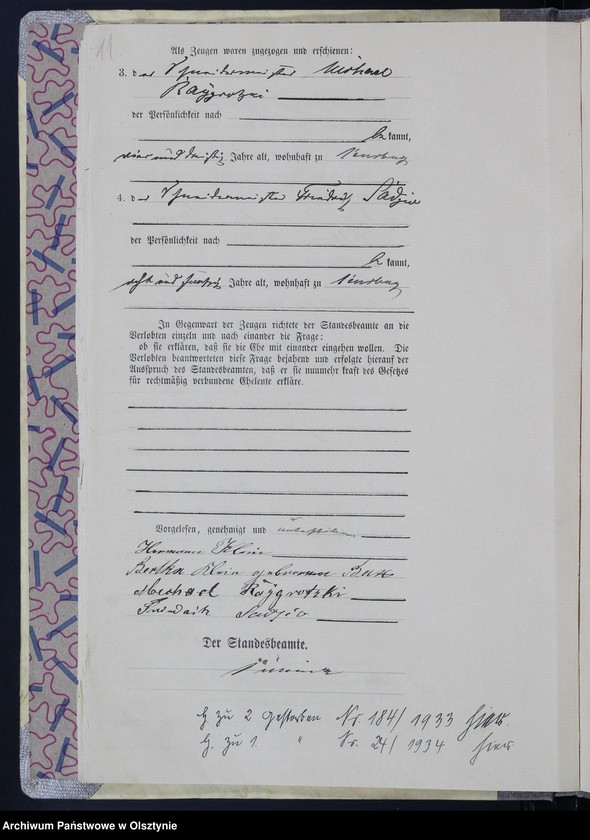 11
Als Zeugen waren zugezogen und erschienen:
3. der Schneidermeister Michael
Raygrotzki
der Persönlichkeit nach
be kannt,
vier und dreißig Jahre alt, wohnhaft zu
4. der Schneidermeister Friedrich
der Persönlichkeit nach
be kannt,
acht und fünfzig Jahre alt, wohnhaft zu
In Gegenwart der Zeugen richtete der Standesbeamte an die
Verlobten einzeln und nach einander die Frage:
ob sie erklären, daß sie die Ehe mit einander eingehen wollen. Die
Verlobten beantworteten diese Frage bejahend und erfolgte hierauf der
Ausspruch des Standesbeamten, daß er sie nunmehr kraft des Gesetzes
für rechtmäßig verbundene Eheleute erkläre.
Vorgelesen, genehmigt und unterschrieben
Hermann Klein
Bertha Klein geborene
Michael Raygrotzki
Friedrich
Der Standesbeamte.
G zu 2 gestorben Nr. 184/1933 hier
G. zu 1 " Nr. 24/1934 hier
Archiwum Państwowe w Olsztynie